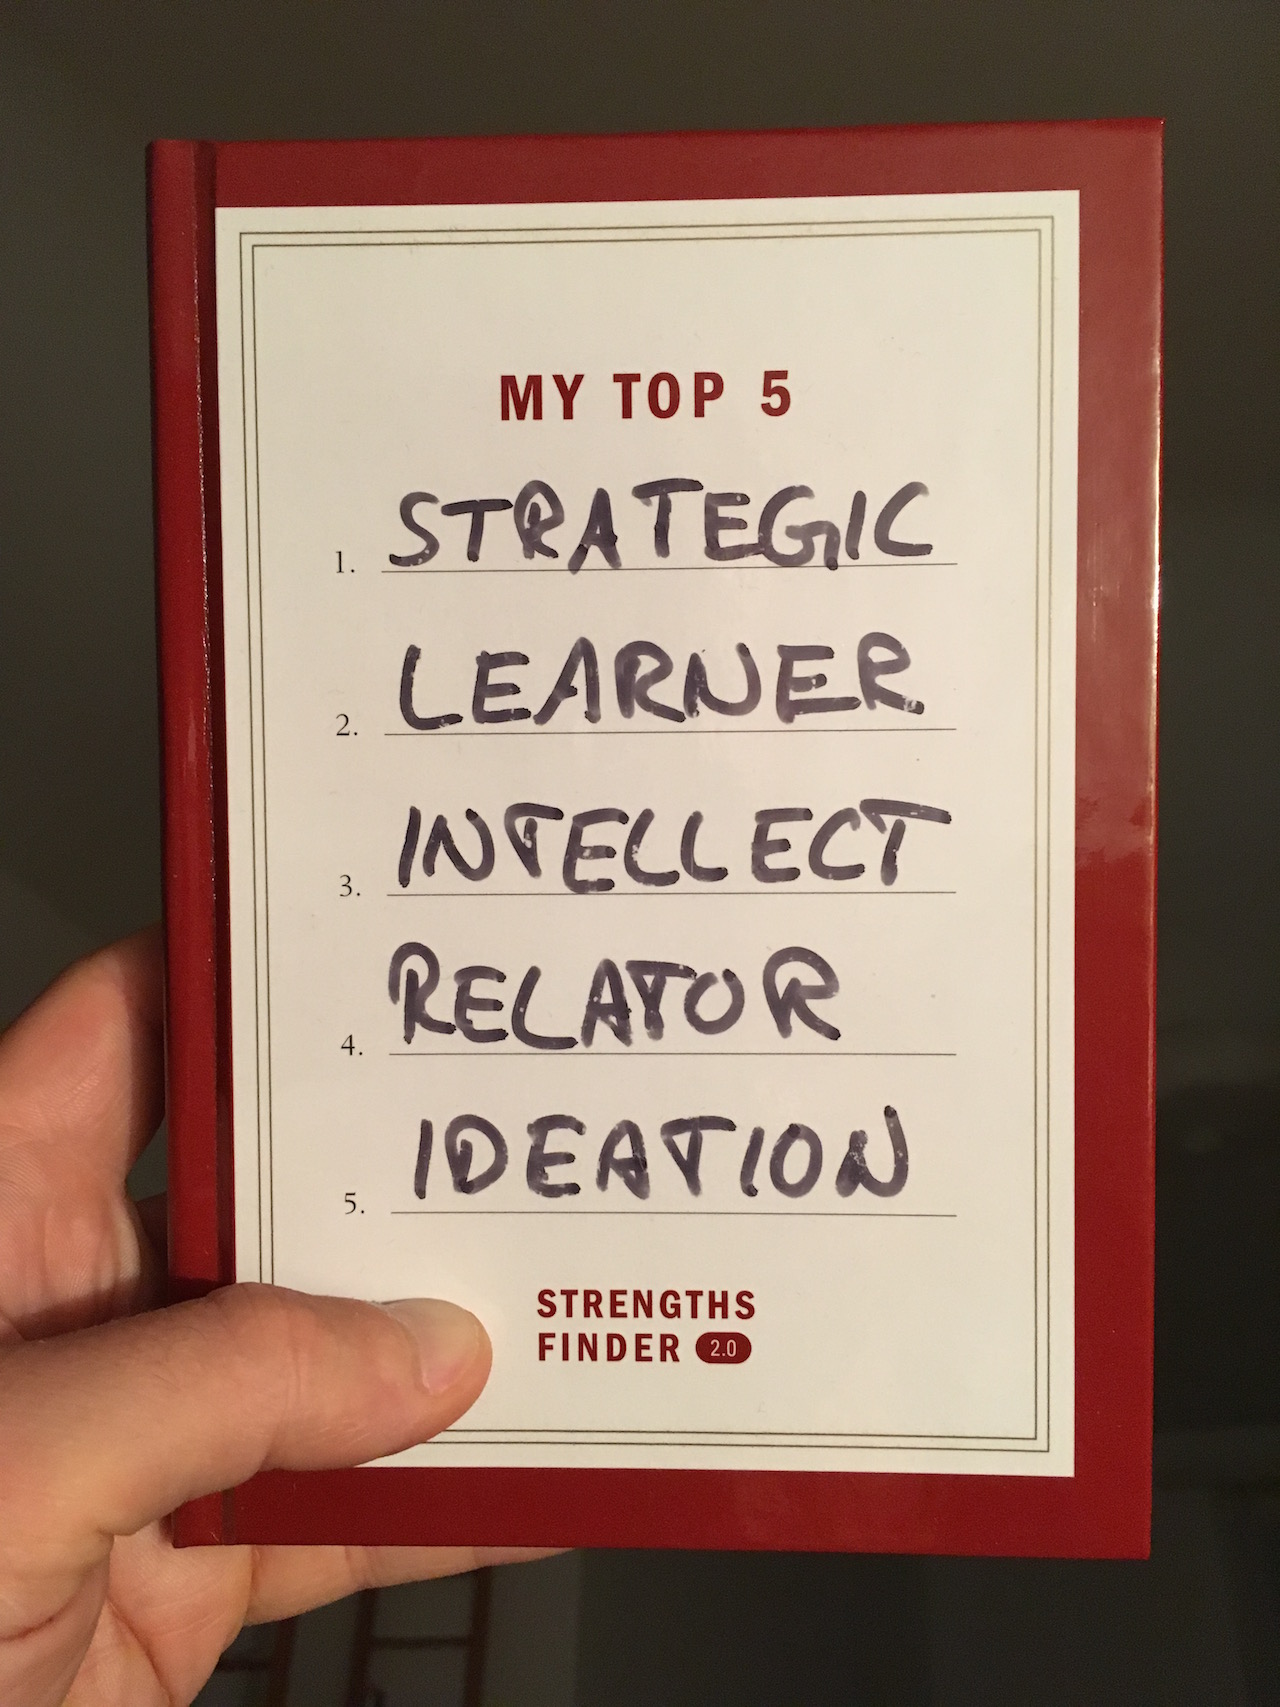 MY TOP 5
1. STRATEGIC
2. LEARNER
3. INTELLECT
4. RELATOR
5. IDEATION
STRENGTHS
FINDER 2.0